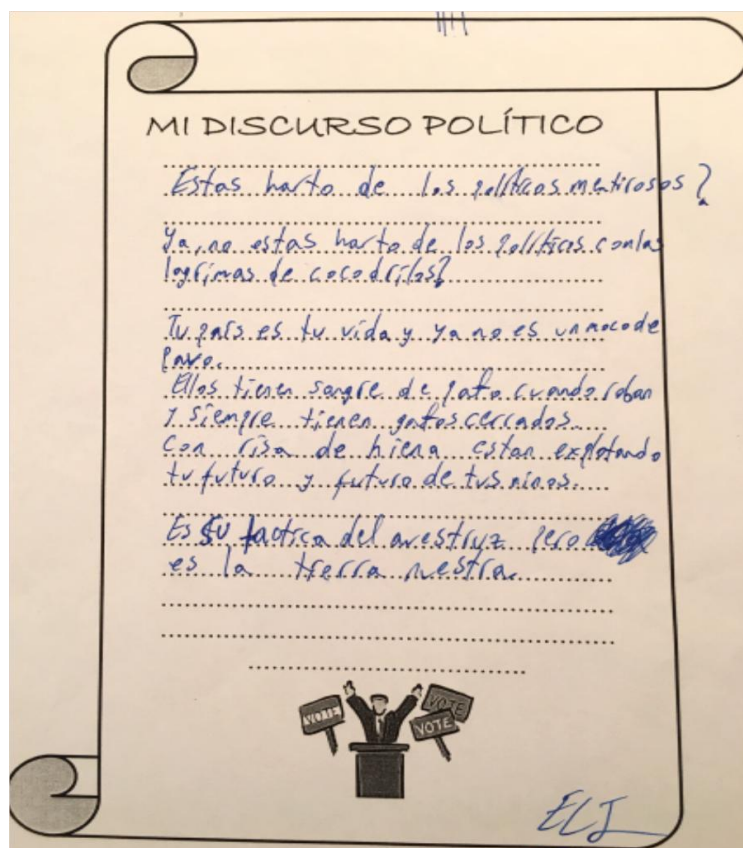 MI DISCURSO POLÍTICO
Estas harto de los políticos mentirosos?
Ya, no estas harto de los políticos con las
logrimas de cocodrilos?
Tu país es tu vida y ya no es un moco de
pavo.
Ellos tienen sangre de pato cuando roban
y siempre tienen gatos cerrados.
Con risa de hiena estan explotando
tu futuro y futuro de tus ninos.
Es su tactica del avestruz pero
es la tierra nuestra.
VOTE
VOTE
VOTE